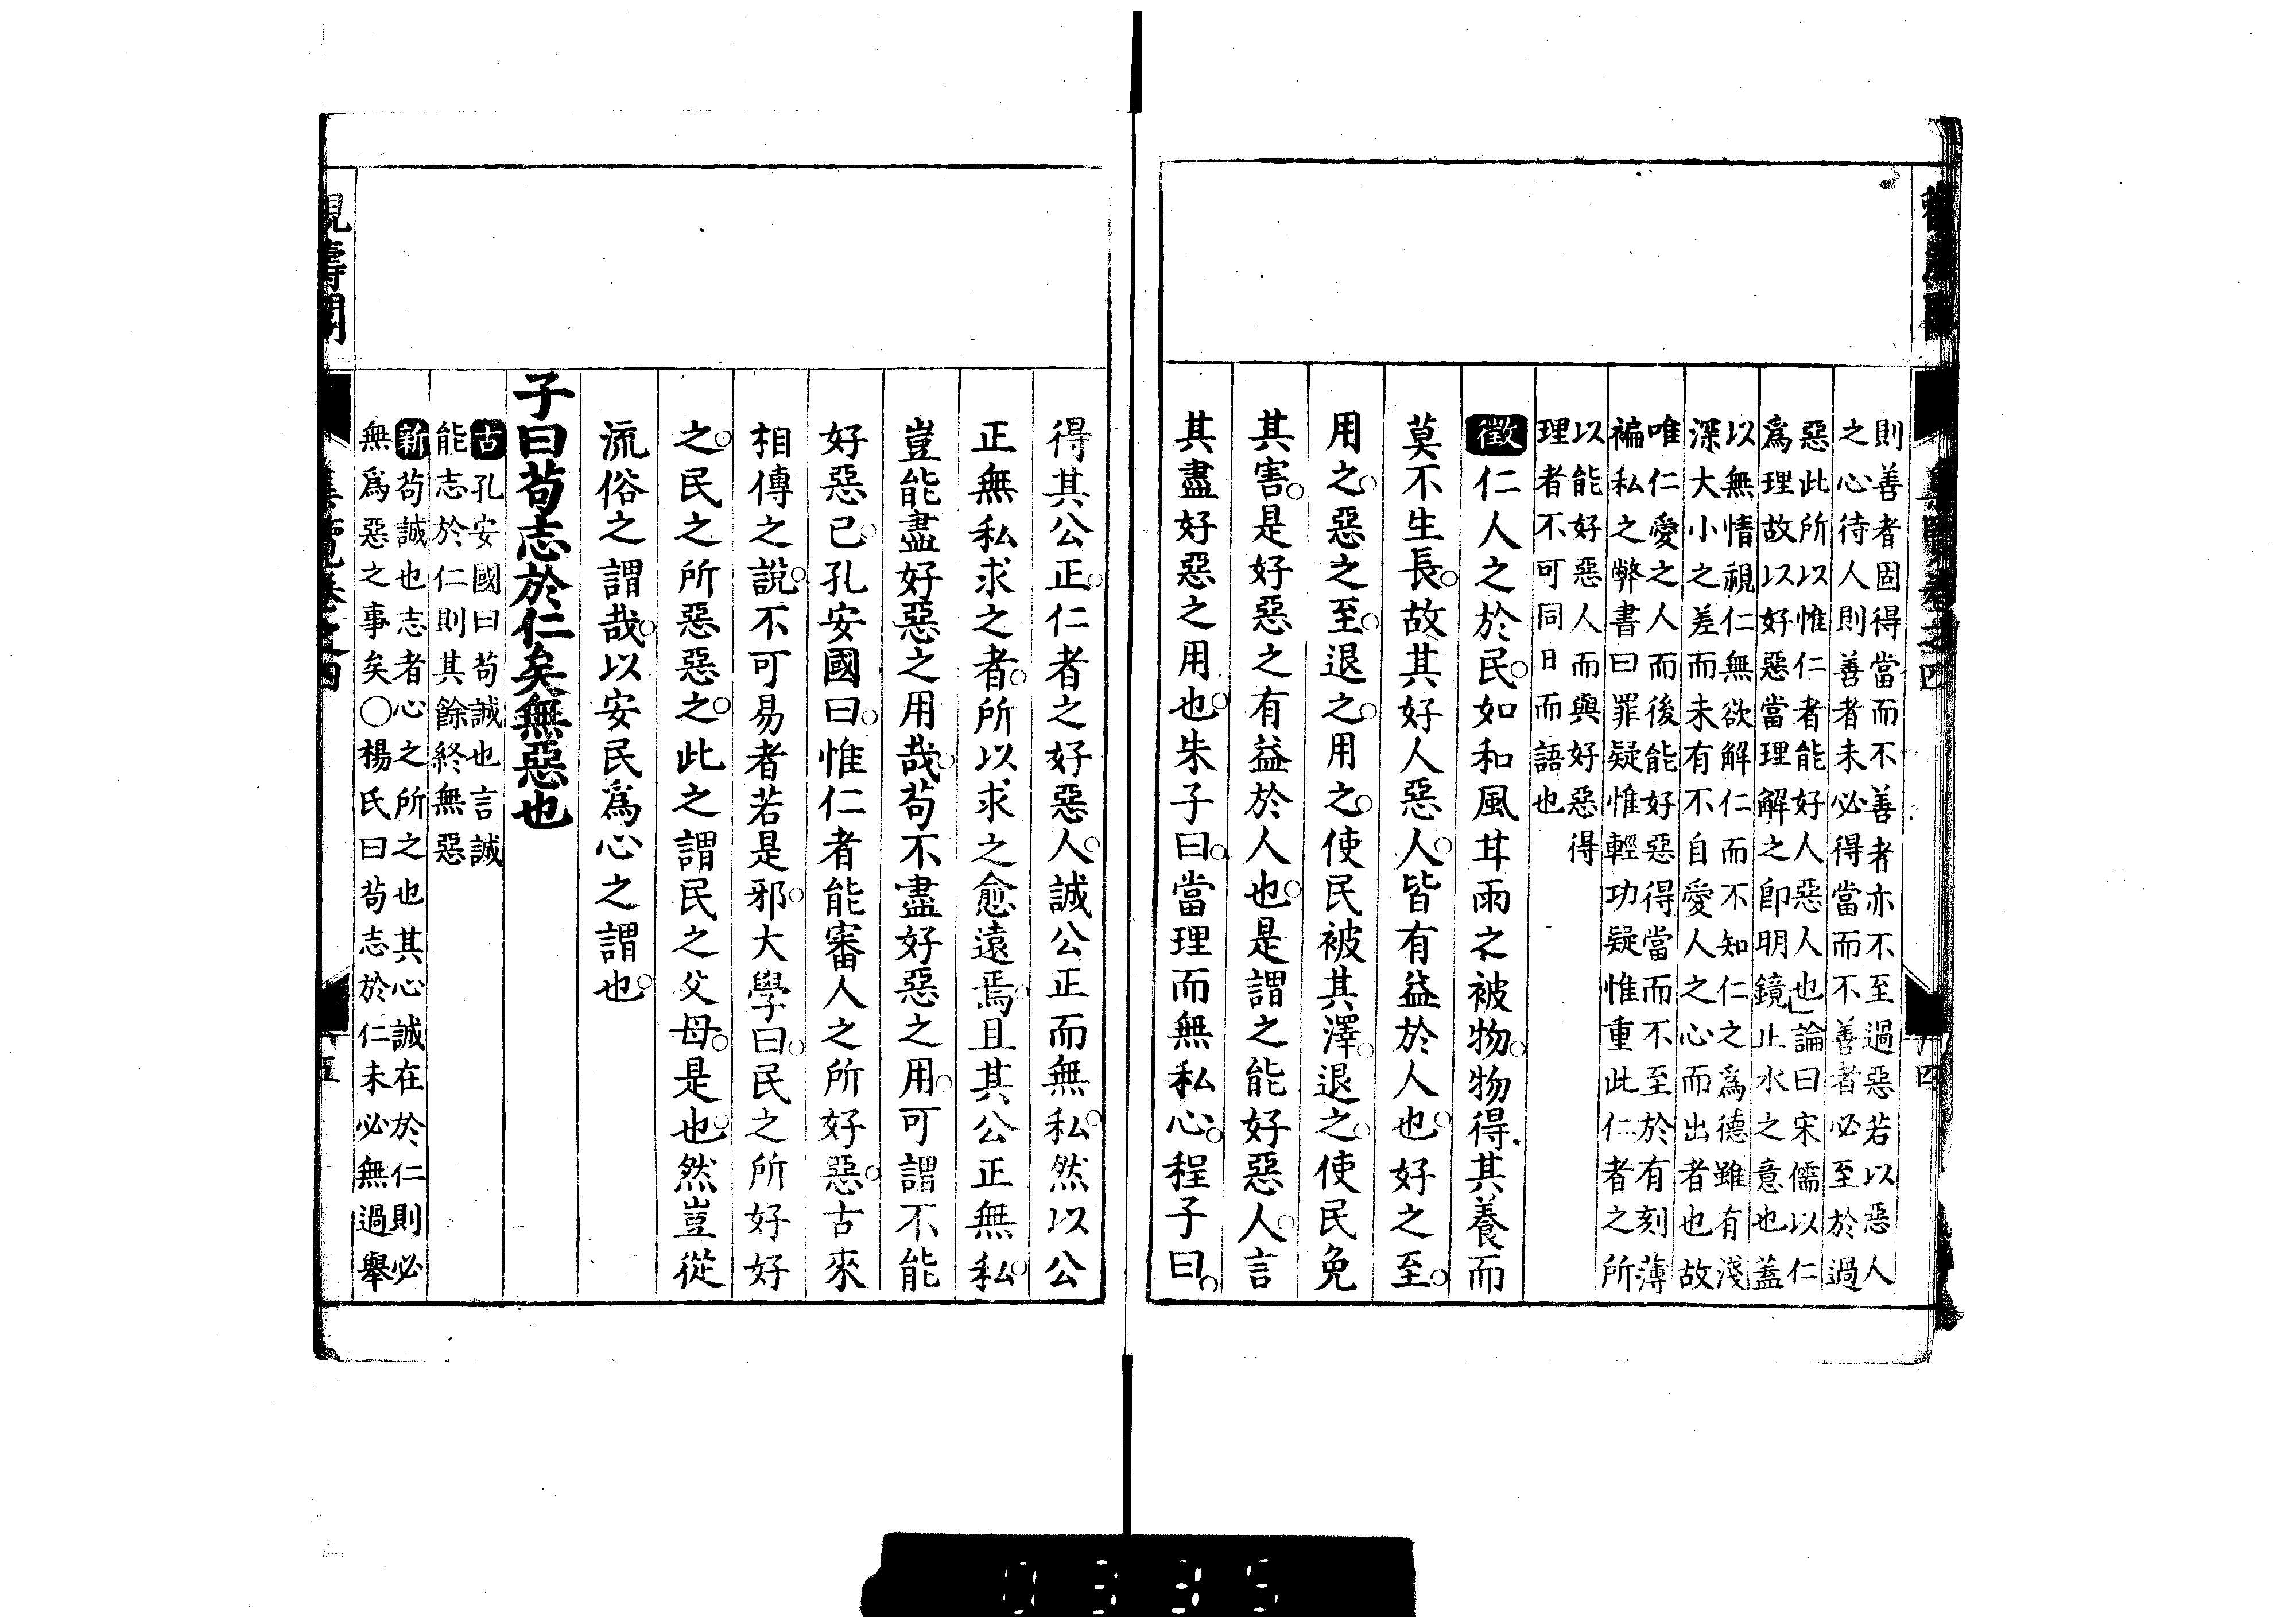 則善者固得當而不善者亦不至過惡若以惡人
之心待人則善者未必得當而不善者必至於過
惡此所以惟仁者能好人惡人也」論曰宋儒以仁
爲理故以好惡當理解之卽明鏡止水之意也蓋
以無情視仁無欲解仁而不知仁之爲德雖有淺
深大小之差而未有不自愛人之心而出者也故
唯仁愛之人而後能好惡得當而不至於有刻薄
褊私之弊書曰罪疑惟輕功疑惟重此仁者之所
以能好惡人而與好惡得
理者不可同日而語也
徵仁人之於民如和風甘雨之被物物得其養而
莫不生長故其好人惡人皆有益於人也好之至
用之惡之至退之用之使民被其澤退之使民免
其害是好惡之有益於人也是謂之能好惡人言
其盡好惡之用也朱子曰當理而無私心程子曰
得其公正仁者之好惡人誠公正而無私然以公
正無私求之者所以求之愈遠焉且其公正無私
豈能盡好惡之用哉苟不盡好惡之用可謂不能
好惡已孔安國曰惟仁者能審人之所好惡古來
相傳之說不可易者若是邪大學曰民之所好好
之民之所惡惡之此之謂民之父母是也然豈從
流俗之謂哉以安民爲心之謂也
子曰苟志於仁矣無惡也
古孔安國曰苟誠也言誠
能志於仁則其餘終無惡
新苟誠也志者心之所之也其心誠在於仁則必
無爲惡之事矣○楊氏曰苟志於仁未必無過舉
五